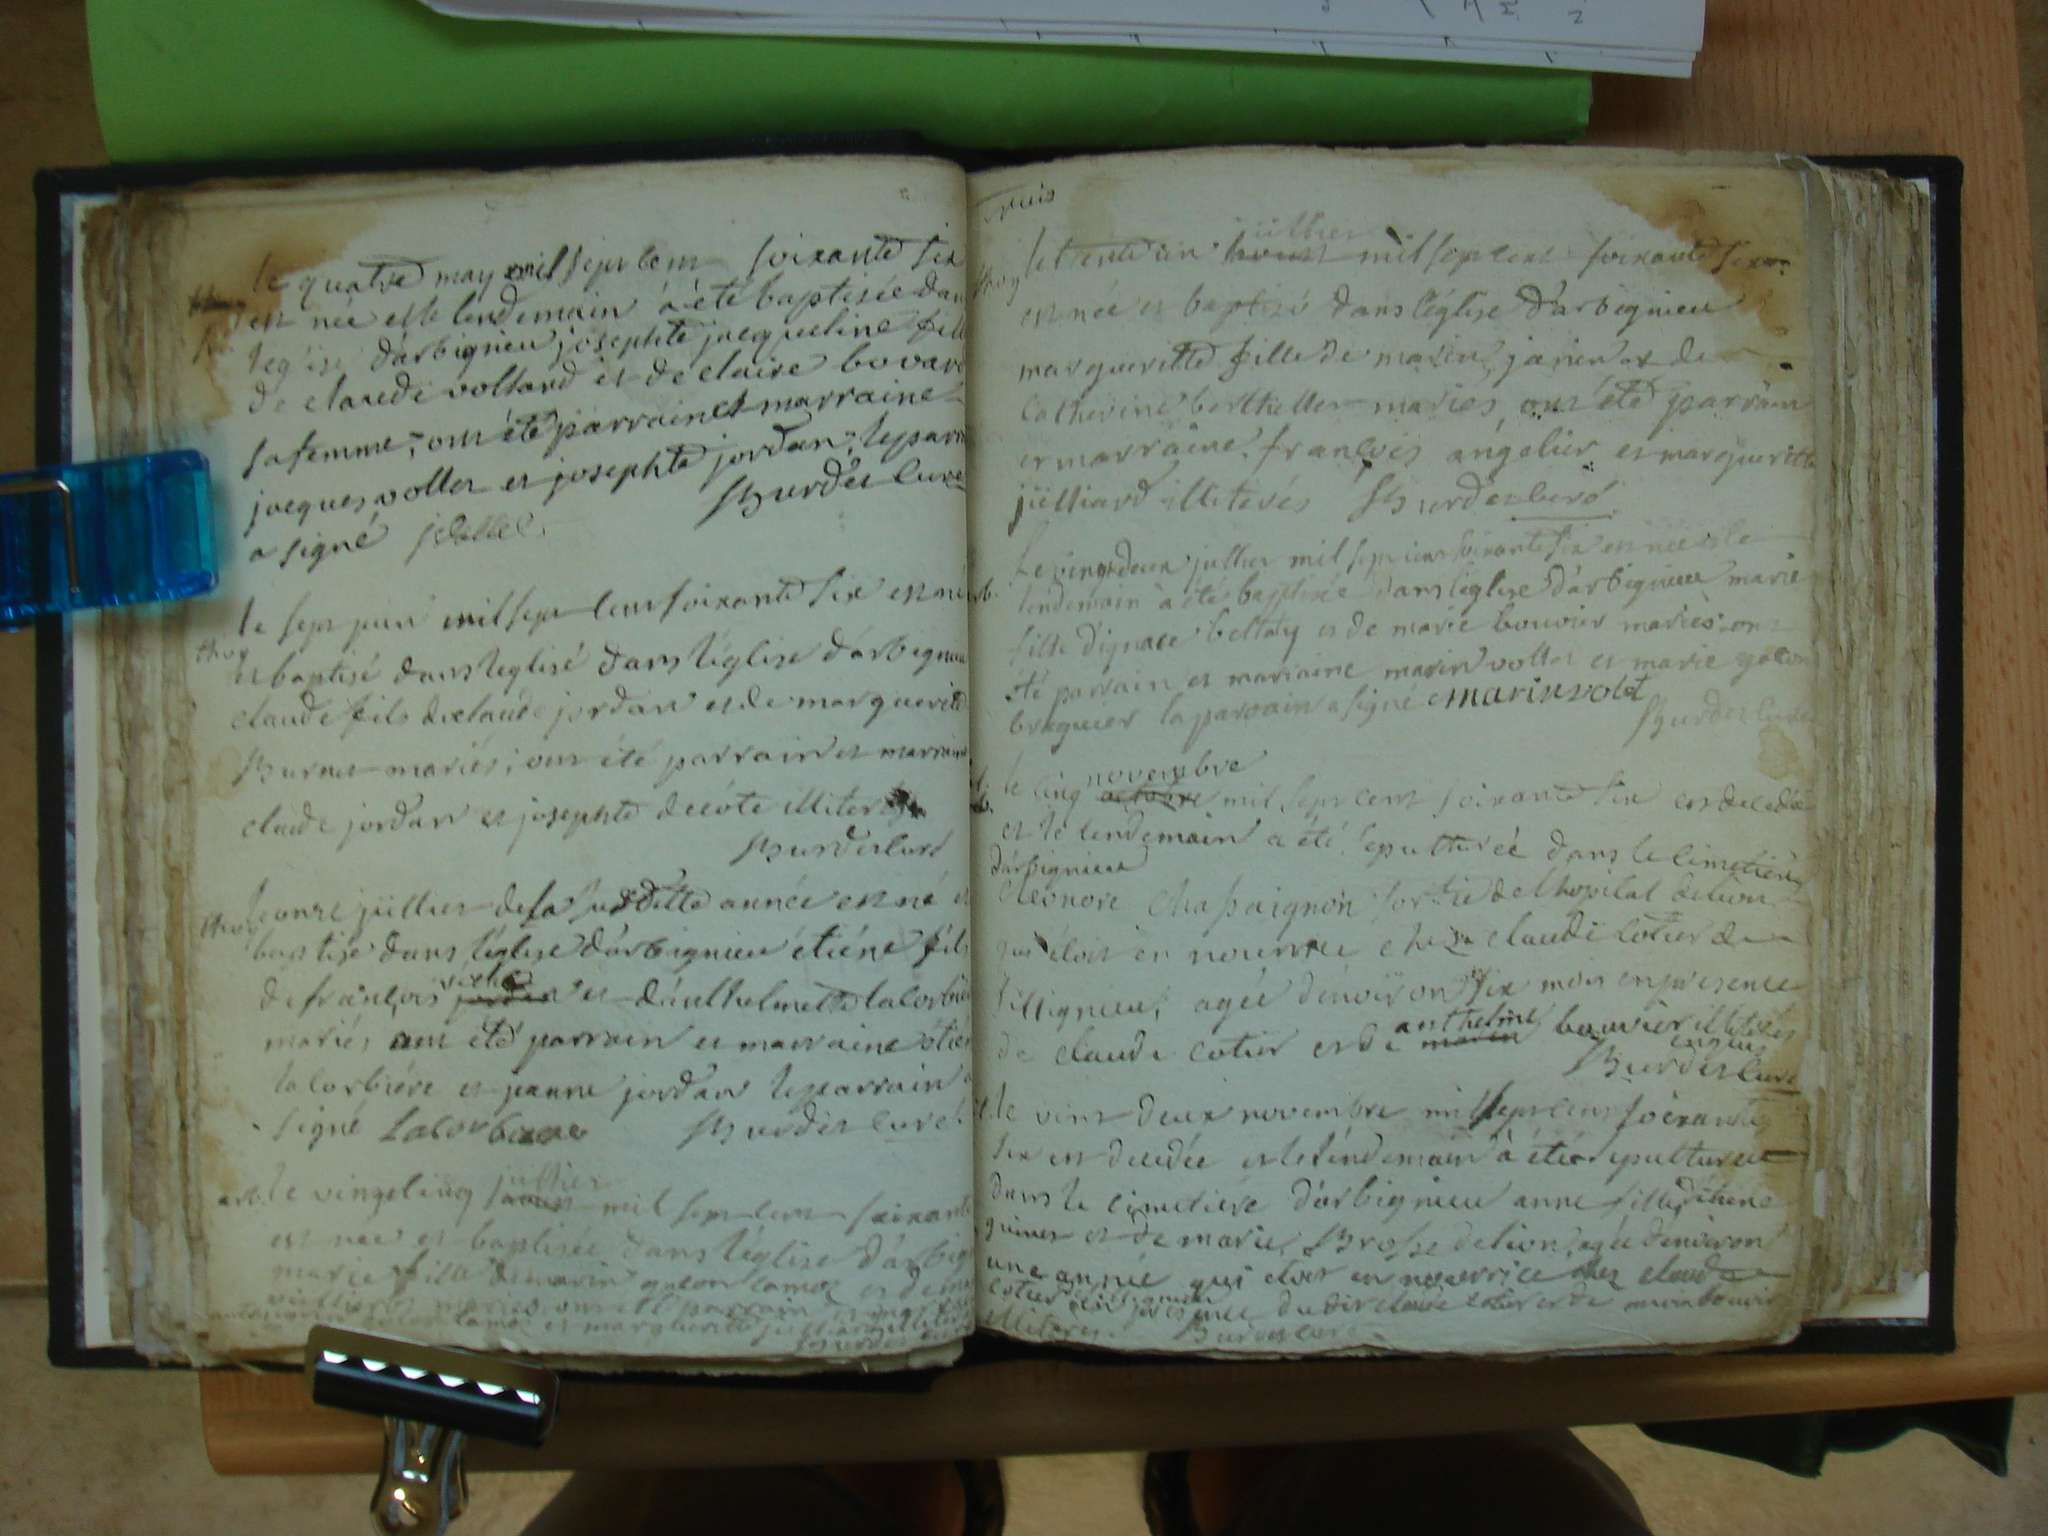 le quatre may mil sept cent soixante six
est née et le lendemain à été baptisée dans
l'eglise d'arbignieu josephte jacqueline fille
de claude vollard et de claire bovard
sa femme, ont été parrain et marraine
jacques vollet et josephte jordan, le parrain
a signé jvollet Burdet curé
thoy
le sept juin mil sept cent soixante six est né
et baptisé dans leglise dans léglise d'arbignieu
claude fils de claude jordan et de margueritte
Burnet mariés; ont été parrain et marraine
claude jordan et josephte decote illiterés
Burdet curé
thoy
le onze jüillet de la susditte année est né et
baptisé dans léglise d'arbignieu étiéne fils
de françois jordan et d'anthelmette lacorbiere
mariés ont été parrain et marraine étiéne
lacorbiére et jeanne jordan le parrain a
signé Lacorbiere Burdet curé.
arb.
jüillet
le vingt cinq aoust mil sept cent soixante
est née et baptisée dans léglise d'arbig
marie fille de marin galon lamoz et de
mariés ont été parrain et mar
lamoz et margueritte jülliard illiterés
Burdet curé
trois
thoy
jüillet
le trente un aoust mil sept cent soixante six
est née et baptisé dans léglise d'arbignieu
margueritte fille de marin janin et de
Catherine berthellet mariés, ont été parrain
et marraine. françois angelier et margueritte
jülliard illiterés Burdet curé
arb.
Le vingt deux jüillet mil sept cent soixante six est née et le
lendemain à été baptisée dans léglise d'arbignieu marie
fille d'ignace bellaty et de marie bouvier mariés ont
été parrain et marraine marin vollet et marie galon
braguier le parrain a signé marin volet
Burdet curé
novembre
le cinq octobre mil sept cent soixante six est decedée
et le lendemain a été sepulturée dans le cimetiére
d'arbignieu
Eléonore Chapaignon sortie de l'hopital de lion
qui étoit en nourrice chez claude cotier de
sillignieu, agée d'environ six mois en presence
de claude cotier et de anthelme marin bouvier illiterés
Burdet curé
le vint deux novembre mil sept cent soixante
six est decedée et le lendemain à été sepulturée
dans le cimetiére d'arbignieu anne fille d'étiéne
guinet et de marie Brosse de lion, agée d'environ
une année qui étoit en nourrice chez claude
cotier de sillignieu presence du dit claude cotier et de marin bouvier
illiterés. Burdet curé